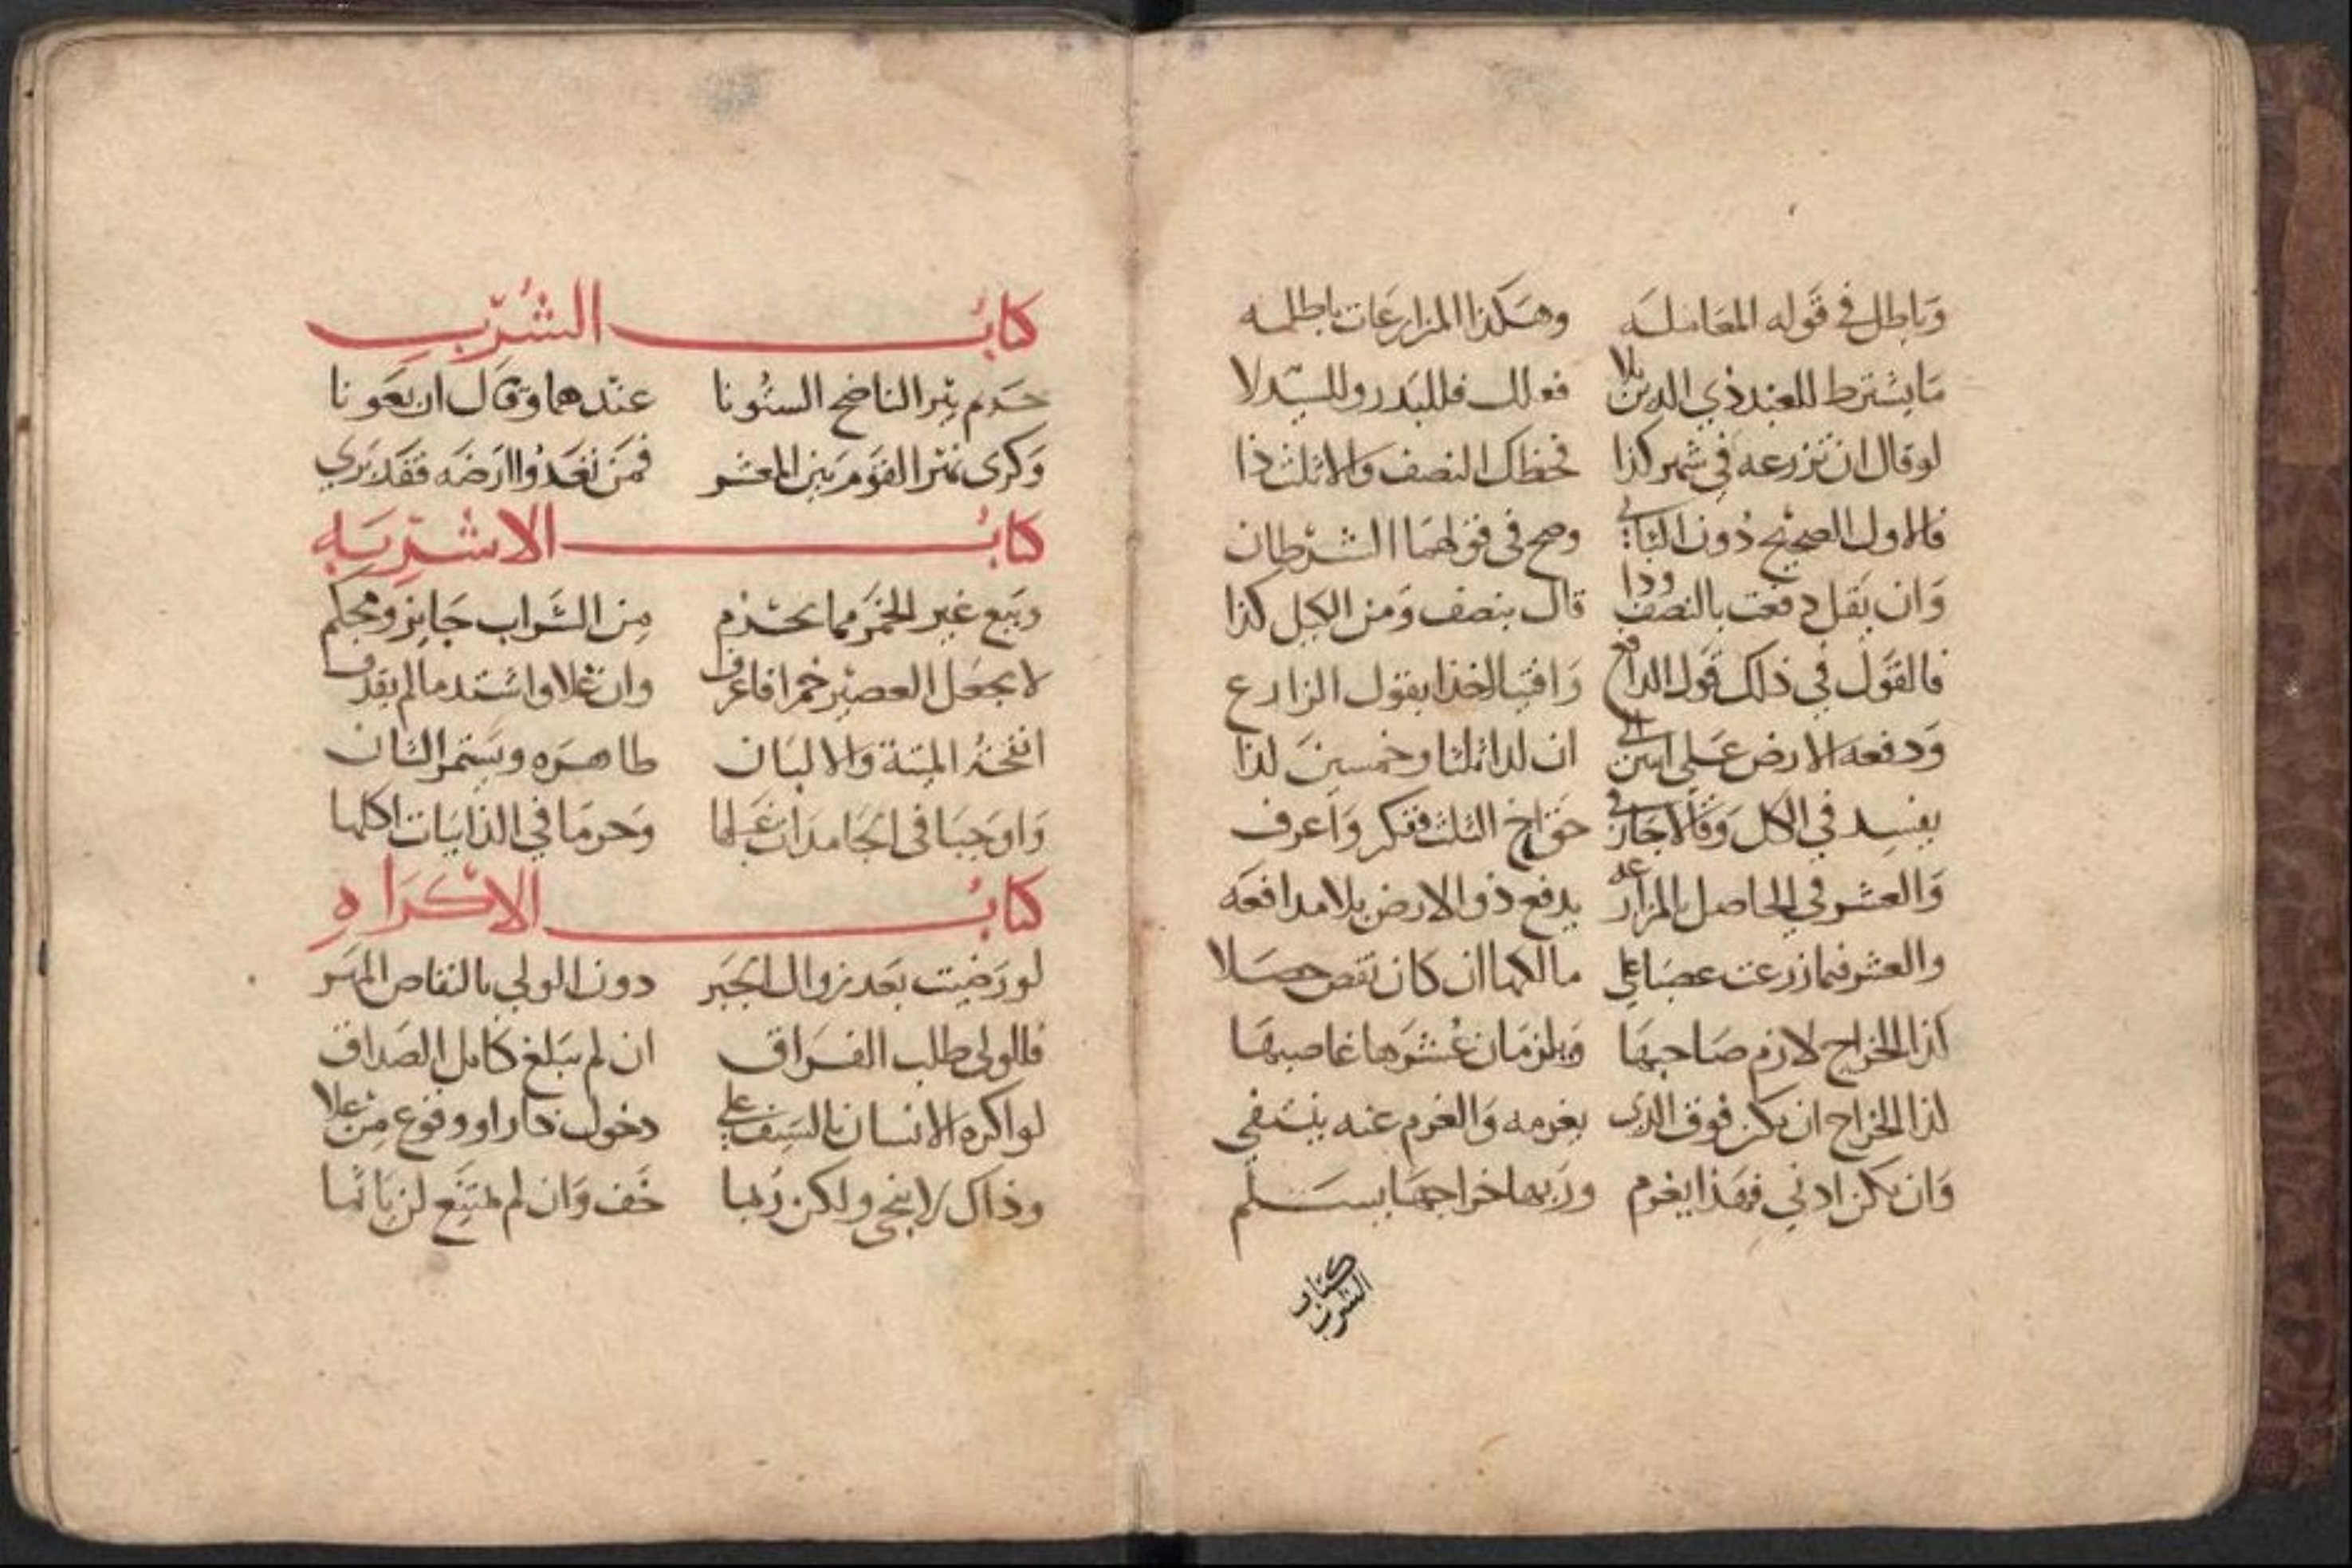 وَباطل في قَوله المعَاملَه وهَكذا المزارعَات باطله
مَا يشترط للعبد ذي الدين بلا فللبَدر وللسيّد لا
لو قال ان تزرعه في شهر كذا فحظك النصف وَالا ثلث ذا
فالاول الصحيح دُون الثاني وصح في قولهمَا الشرطان
وَان يَقل دفعت بالنصف وذا قال بنصف وَمن الكل كذا
فالقَول في ذلك قول الدافع وَافتيا لخذا بقول الزارع
وَدفعه الارض عَلى ان لذا ثلثا وخمسين لذا
يفسد في الكل وَقالا جَاز في حق اخ الثلث ففكر وَاعرف
وَالعشر في الحاصل بالمزارعه يدفع ذو الارض بلا مدافعَه
والعشر فيما زرعت غصبَا على مالكها ان كان نقص حصَلا
كذا الخراج لازم صَاحبهَا وَيلزمَان عُشرَها غاصبهَا
كذا الخراج ان يكن فوق الذي يغرمه وَالغرم عنه ينتفي
وَان يكن ادنى فهَذا يغرم ورَبها خراجهَا يسَلّم
كتاب الشرب
كتابُ الشُرب
حَريم بئر الناضح الستُونا عندهما وَقال اربعَونا
وَكرى نهر القَوم بَين المعشر فمَن تعَدوا ارَضَه فقَد بَري
كتابُ الاشربَه
وبَيع غير الخمَر مما يحرُم مِن الشَراب جَايز ومحكم
لا يجعَل العصير خمرا فاعرف وان غلا واشتد ما لم يقذف
انفحَةُ الميتة وَالالبَان طاهرَه
وَاوجَبَا في الجَامدَات غسَلها وَحرمَا في الذايبَات اكلها
كتابُ الاكرَاه
لو رَضيت بَعد زوال الجَبر دون الولي بالنقاص المهَر
فللولي طلب الفرَاق ان لم يَبلغ كامل الصَداق
لو اكره الانسان بالسَيف على دخول نار او وقوع مِن علا
وذاك لا ينجي ولكن رُبما خَف وَان لم يمتنع لن ياثما